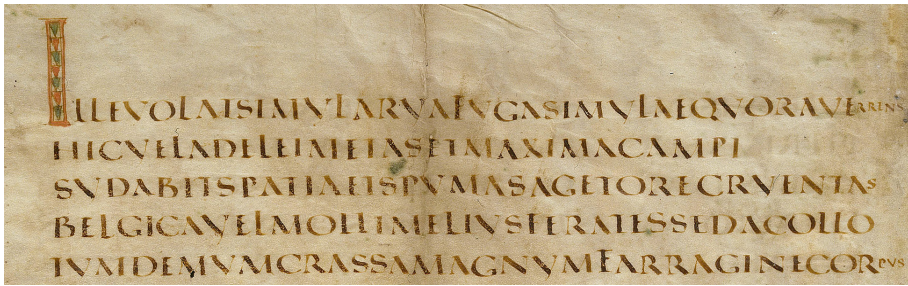 ILLEVOLATSIMVLARVAFVGASIMVLAEQVORAVERRENS
HICVELADELEIMETASETMAXIMACAMPI
SVDABITSPATIAETSPVMASAGETORECRVENTAS
BELGICAVELMOLLIMELIVSFERATESSEDACOLLO
TVMDEMVMCRASSAMAGNVMFARRAGINECORPVS